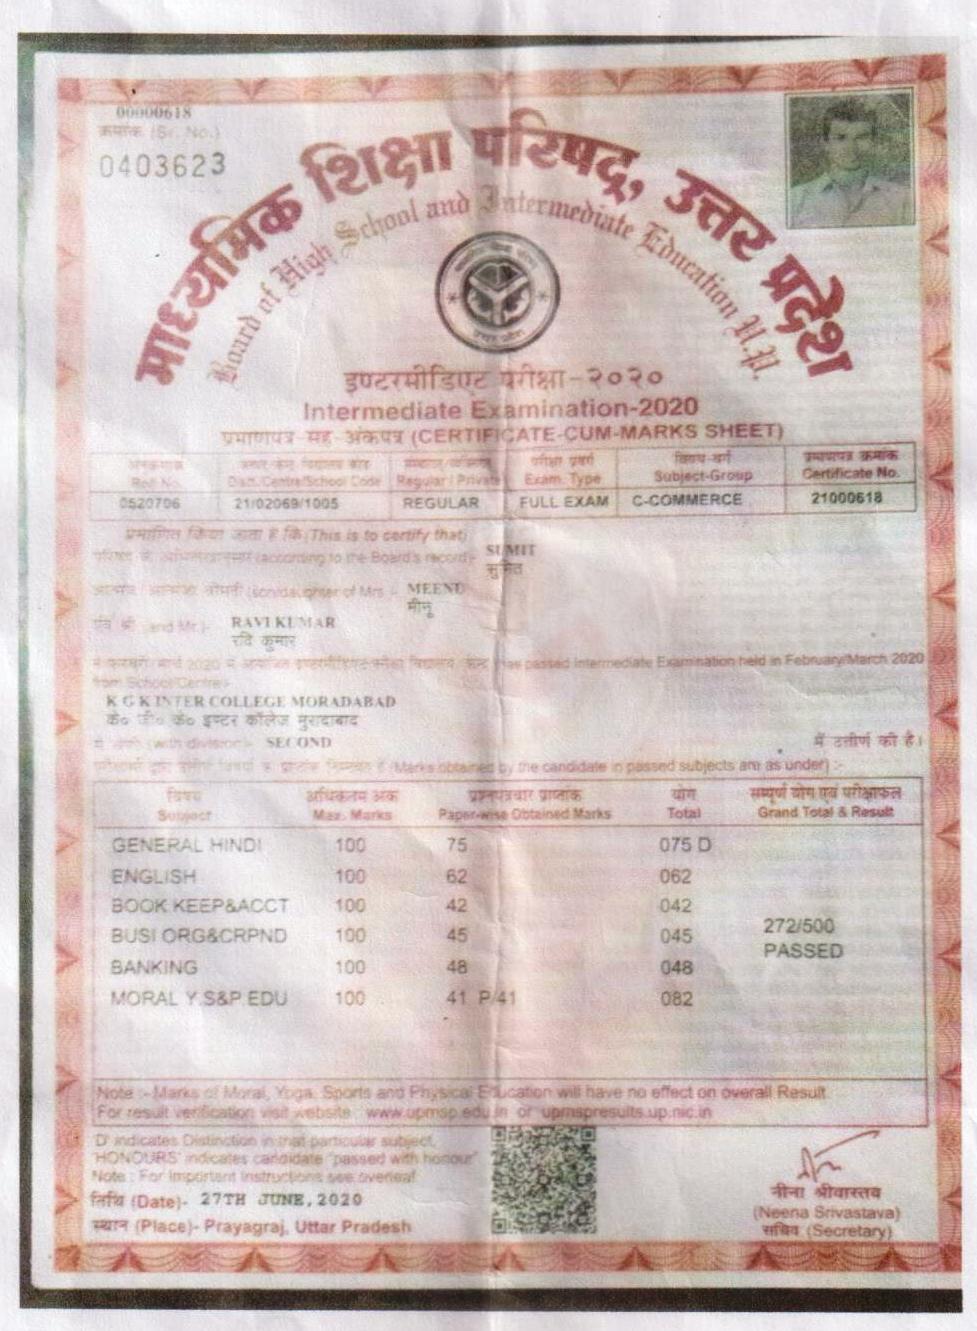 00000618
क्रमांक (Sr. No.)
0403623
माध्यमिक शिक्षा परिषद, उत्तर प्रदेश
Board of High School and Intermediate Education U.P.
उत्तर प्रदेश
इण्टरमीडिएट परीक्षा-२०२०
Intermediate Examination-2020
प्रमाणपत्र-सह-अंकपत्र (CERTIFICATE-CUM-MARKS SHEET)
अनुक्रमांक परीक्षा प्रकार विषय-वर्ग प्रमाणपत्र क्रमांक
Roll No. Distt./Centre/School Code Regular / Private Exam. Type Subject-Group Certificate No.
0520706 21/02069/1005 REGULAR FULL EXAM C-COMMERCE 21000618
प्रमाणित किया जाता है कि (This is to certify that)
(according to the Board's record)- SUMIT
सुमित
(son/daughter of Mrs.)- MEENU
मीनू
एवं श्री (and Mr.)- RAVI KUMAR
रवि कुमार
(has passed Intermediate Examination held in February/March 2020
from School/Centre)-
K G K INTER COLLEGE MORADABAD
के० जी० के० इण्टर कॉलेज मुरादाबाद
(with division)- SECOND में उत्तीर्ण की है।
(Marks obtained by the candidate in passed subjects are as under) :-
विषय अधिकतम अंक प्रश्नपत्रवार प्राप्तांक योग सम्पूर्ण योग एवं परीक्षाफल
Subject Max. Marks Paper-wise Obtained Marks Total Grand Total & Result
GENERAL HINDI 100 75 075 D
ENGLISH 100 62 062
BOOK KEEP&ACCT 100 42 042
272/500
BUSI ORG&CRPND 100 45 045
PASSED
BANKING 100 48 048
MORAL Y.S&P.EDU 100 41 P/41 082
Note :- Marks of Moral, Yoga, Sports and Physical Education will have no effect on overall Result.
For result verification visit website : www.upmsp.edu.in or upmspresults.up.nic.in
'D' indicates Distinction in that particular subject.
'HONOURS' indicates candidate "passed with honour"
Note : For Important Instructions see overleaf
तिथि (Date)- 27TH JUNE, 2020
स्थान (Place)- Prayagraj, Uttar Pradesh
नीना श्रीवास्तव
(Neena Srivastava)
सचिव (Secretary)